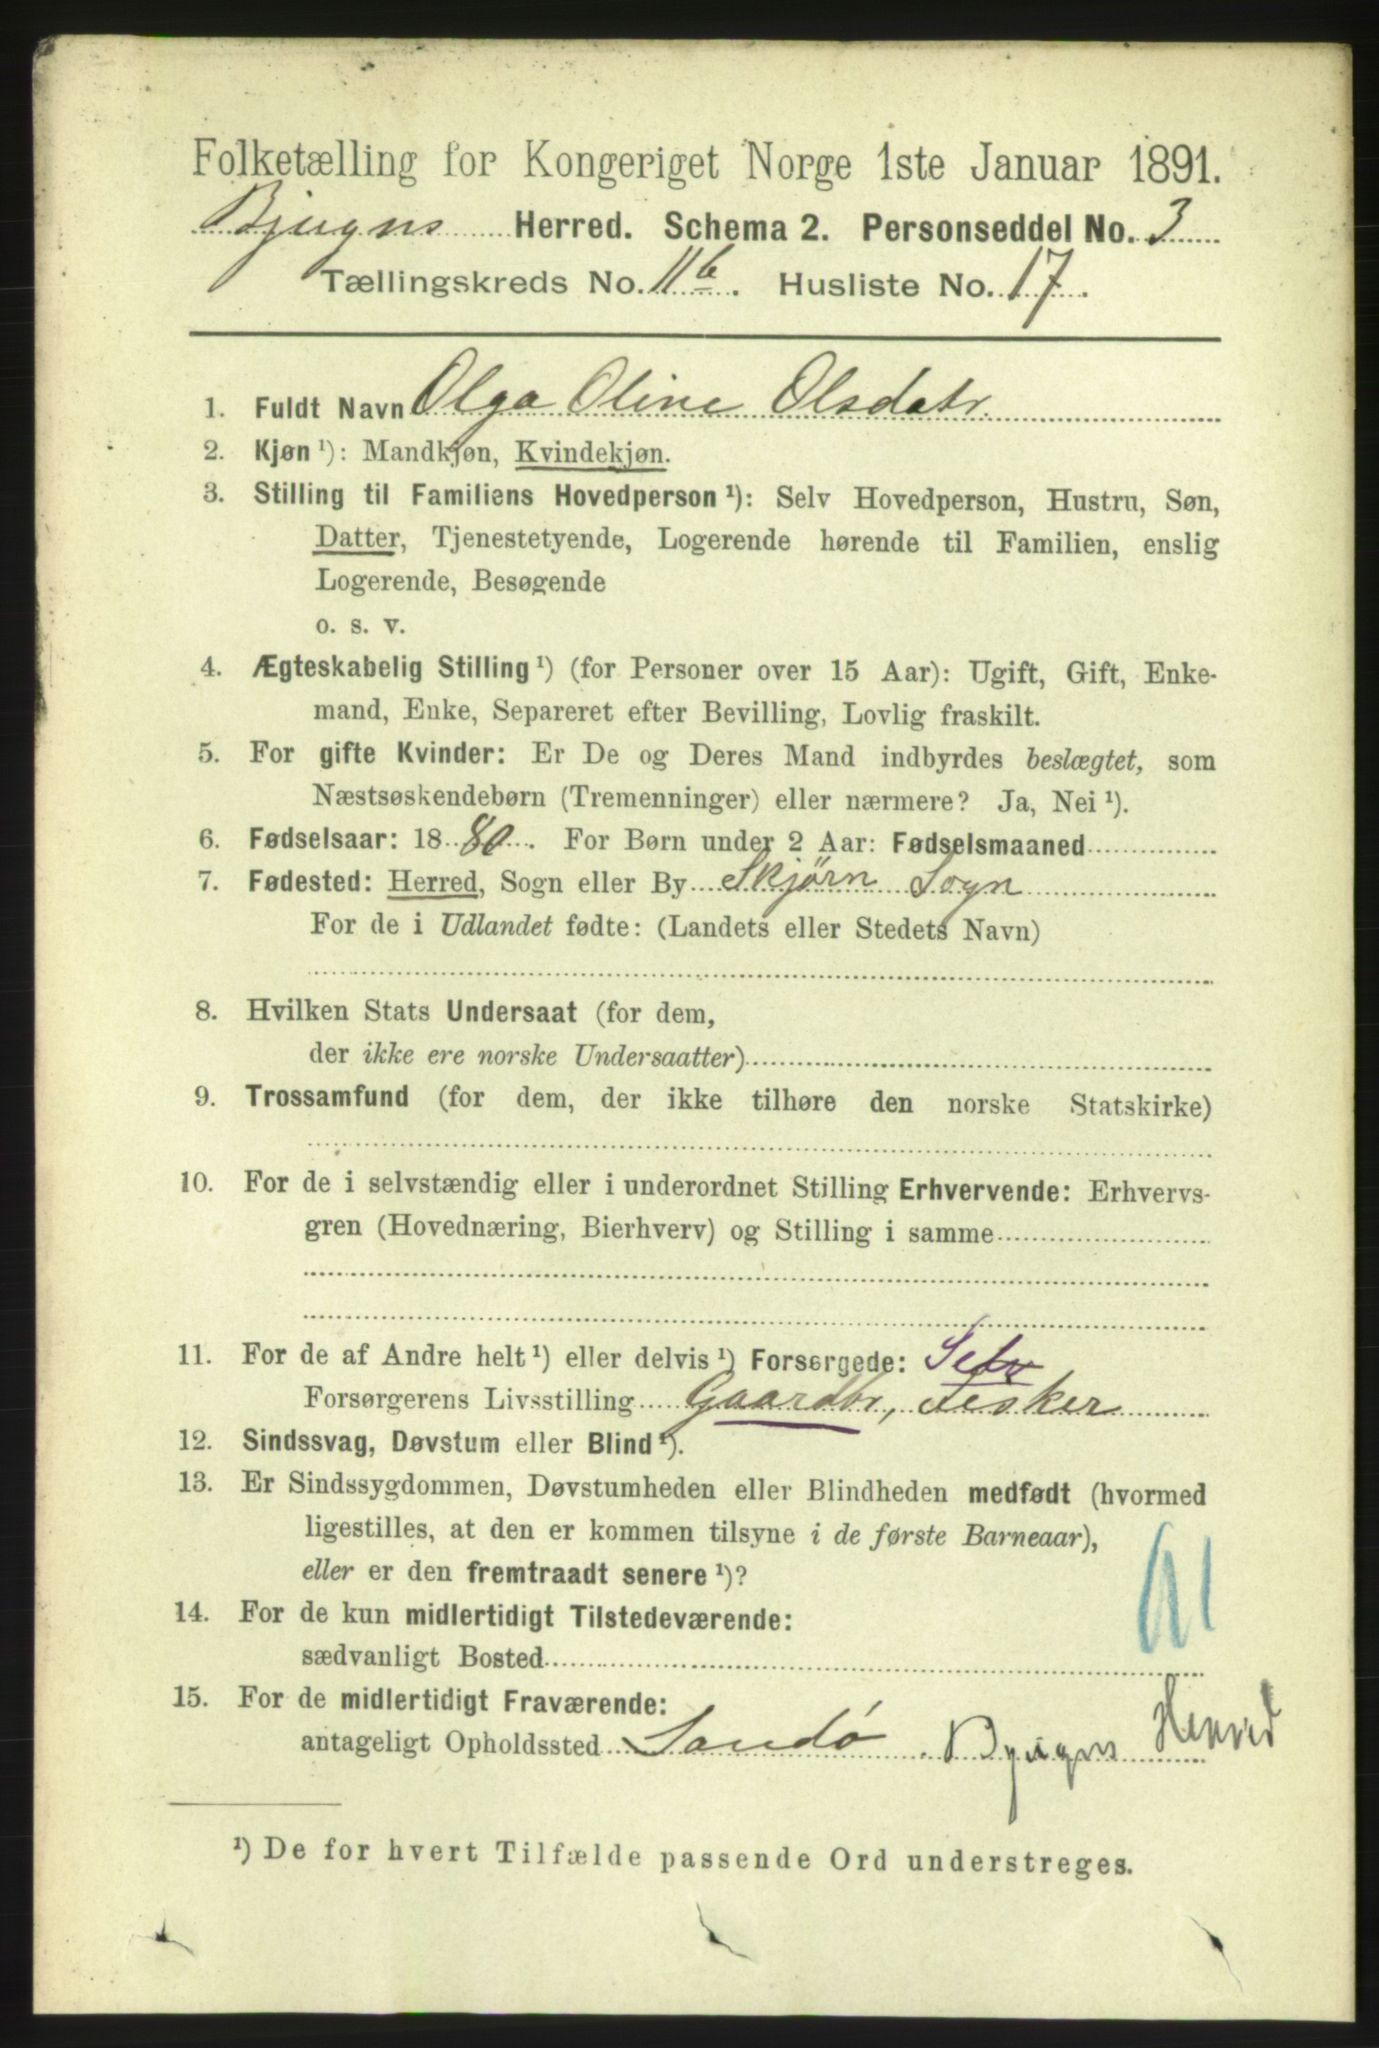 Folketælling for Kongeriget Norge 1ste Januar 1891.
Bjugns Herred. Schema 2. Personseddel No. 3
Tællingskreds No. 11b. Husliste No. 17.
1. Fuldt Navn Olga Oline Olsdatr.
2. Kjøn ¹): Mandkjøn, Kvindekjøn.
3. Stilling til Familiens Hovedperson ¹): Selv Hovedperson, Hustru, Søn,
Datter, Tjenestetyende, Logerende hørende til Familien, enslig
Logerende, Besøgende
o. s. v.
4. Ægteskabelig Stilling ¹) (for Personer over 15 Aar): Ugift, Gift, Enke-
mand, Enke, Separeret efter Bevilling, Lovlig fraskilt.
5. For gifte Kvinder: Er De og Deres Mand indbyrdes beslægtet, som
Næstsøskendebørn (Tremenninger) eller nærmere? Ja, Nei ¹).
6. Fødselsaar: 1880. For Børn under 2 Aar: Fødselsmaaned
7. Fødested: Herred, Sogn eller By Skjørn Sogn
For de i Udlandet fødte: (Landets eller Stedets Navn)
8. Hvilken Stats Undersaat (for dem,
der ikke ere norske Undersaatter)
9. Trossamfund (for dem, der ikke tilhøre den norske Statskirke)
10. For de i selvstændig eller i underordnet Stilling Erhvervende: Erhvervs-
gren (Hovednæring, Bierhverv) og Stilling i samme
11. For de af Andre helt ¹) eller delvis ¹) Forsørgede: Selv
Forsørgerens Livsstilling Gaardbr, Fisker
12. Sindssvag, Døvstum eller Blind ¹).
13. Er Sindssygdommen, Døvstumheden eller Blindheden medfødt (hvormed
ligestilles, at den er kommen tilsyne i de første Barneaar),
eller er den fremtraadt senere ¹)?
14. For de kun midlertidigt Tilstedeværende:
sædvanligt Bosted
15. For de midlertidigt Fraværende:
antageligt Opholdssted Sandø. Bjugns Herred
¹) De for hvert Tilfælde passende Ord understreges.